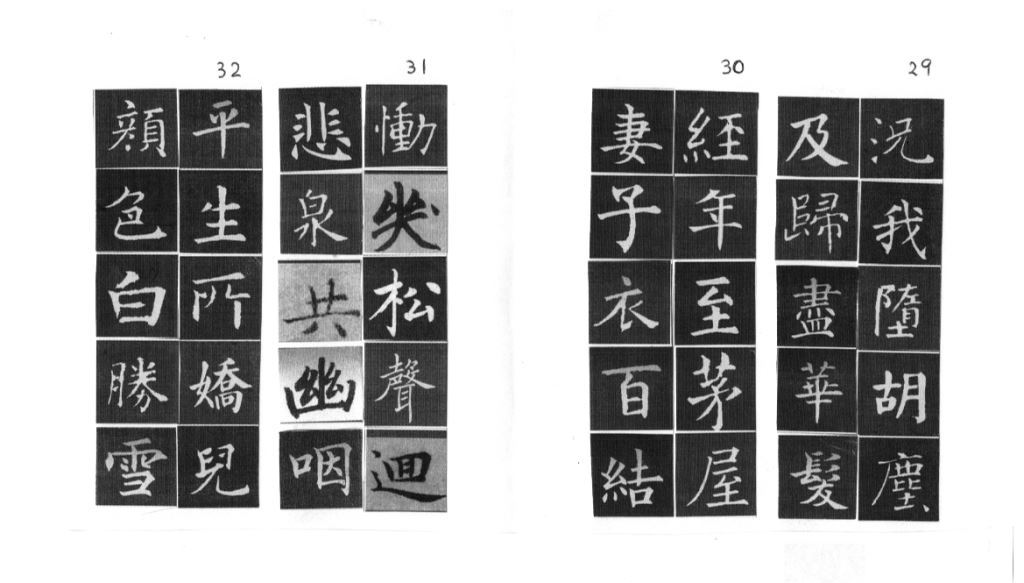 29
況我墮胡塵
及歸盡華髮
30
經年至茅屋
妻子衣百結
31
慟哭松聲迴
悲泉共幽咽
32
平生所嬌兒
顔色白勝雪